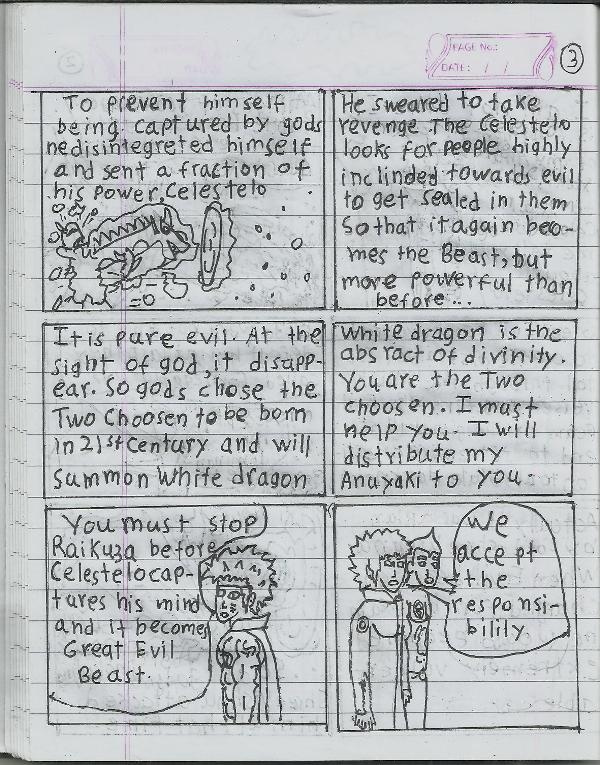 PAGE No.:
DATE: / /
3
To prevent himself
being captured by gods
he disintegreted himself
and sent a fraction of
his power, Celestelo
=0
He sweared to take
revenge. The Celestelo
looks for people highly
inclinded towards evil
to get sealed in them
So that it again beco-
mes the Beast, but
more powerful than
before...
It is pure evil. At the
sight of god, it disapp-
ear. So gods chose the
Two Choosen to be born
in 21st Century and will
Summon White dragon
White dragon is the
absract of divinity.
You are the Two
choosen. I must
help you. I will
distribute my
Anayaki to you.
You must stop
Raikuza before
Celestelo cap-
tures his mind
and it becomes
Great Evil
Beast.
We
accept
the
responsi-
bility.